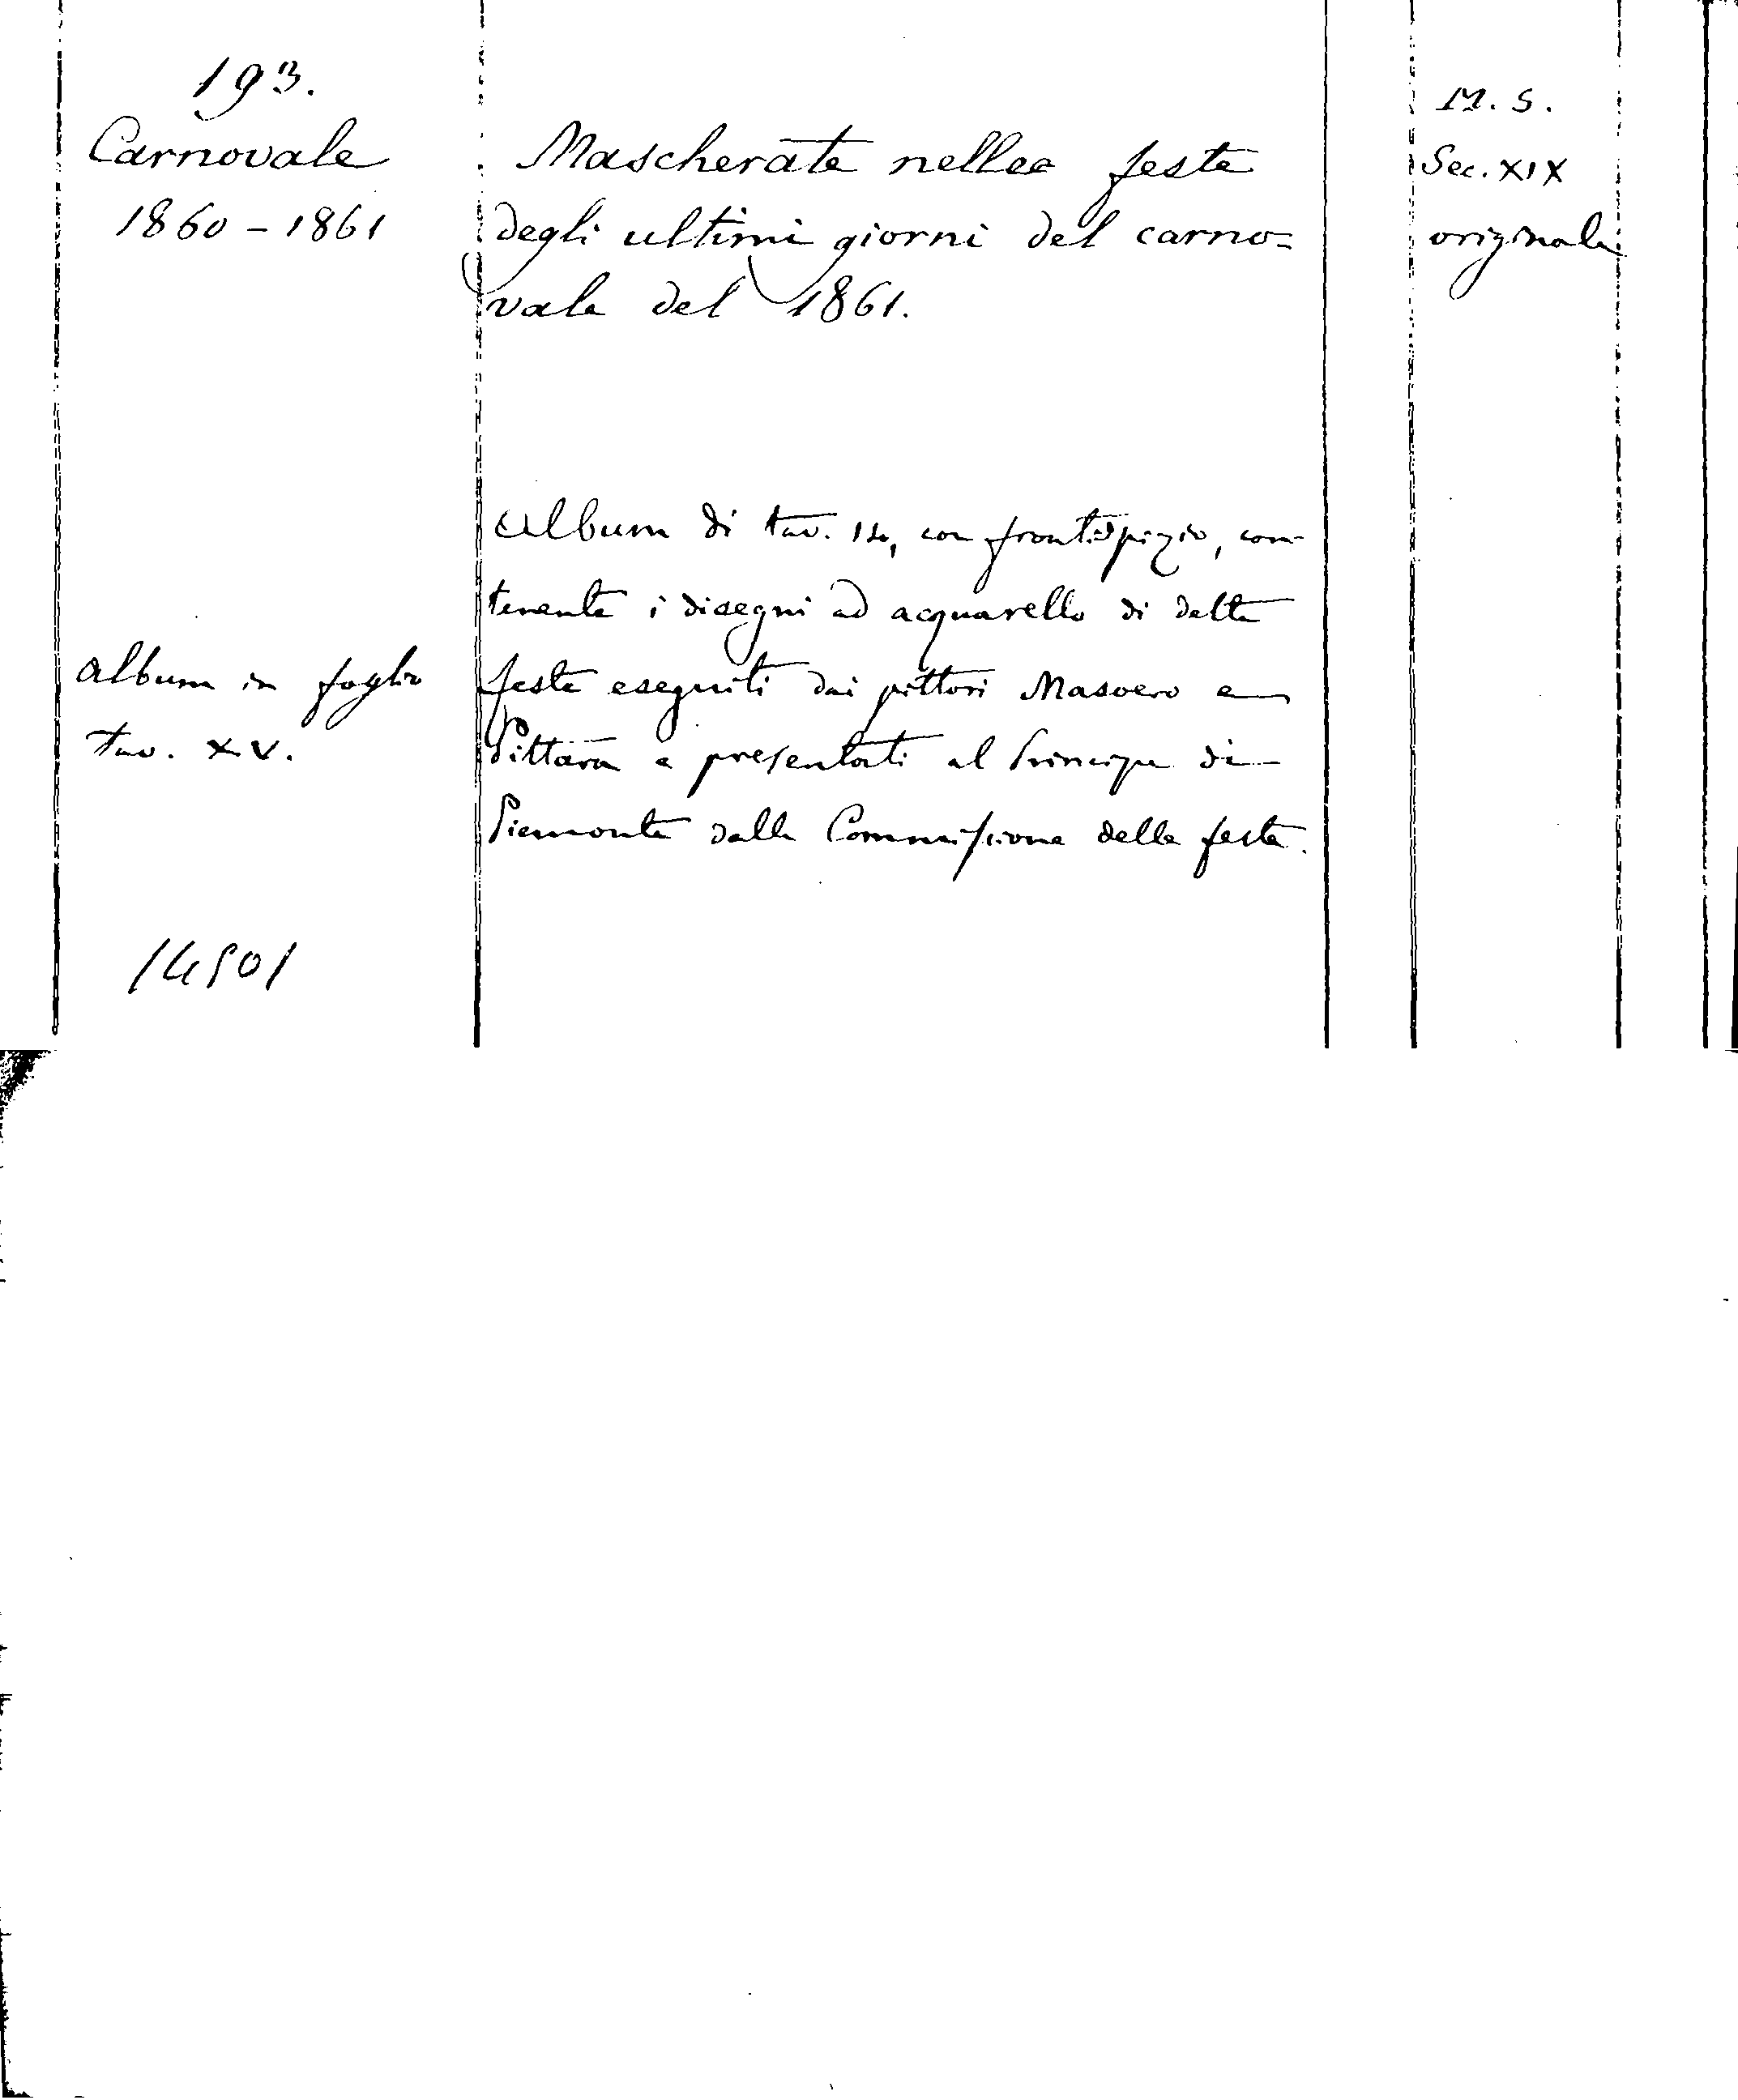 193.
Carnovale
1860 - 1861
Mascherate nelle feste
degli ultimi giorni del carno=
vale del 1861.
M. S.
Sec. XIX
originale
Album di tav. 14, con frontispizio, con-
tenente i disegni ad acquarello di dette
feste eseguiti dai pittori Masoero e
Pittara e presentati al Principe di
Piemonte dalla Commissione delle feste.
Album in foglio
tav. XV.
14501